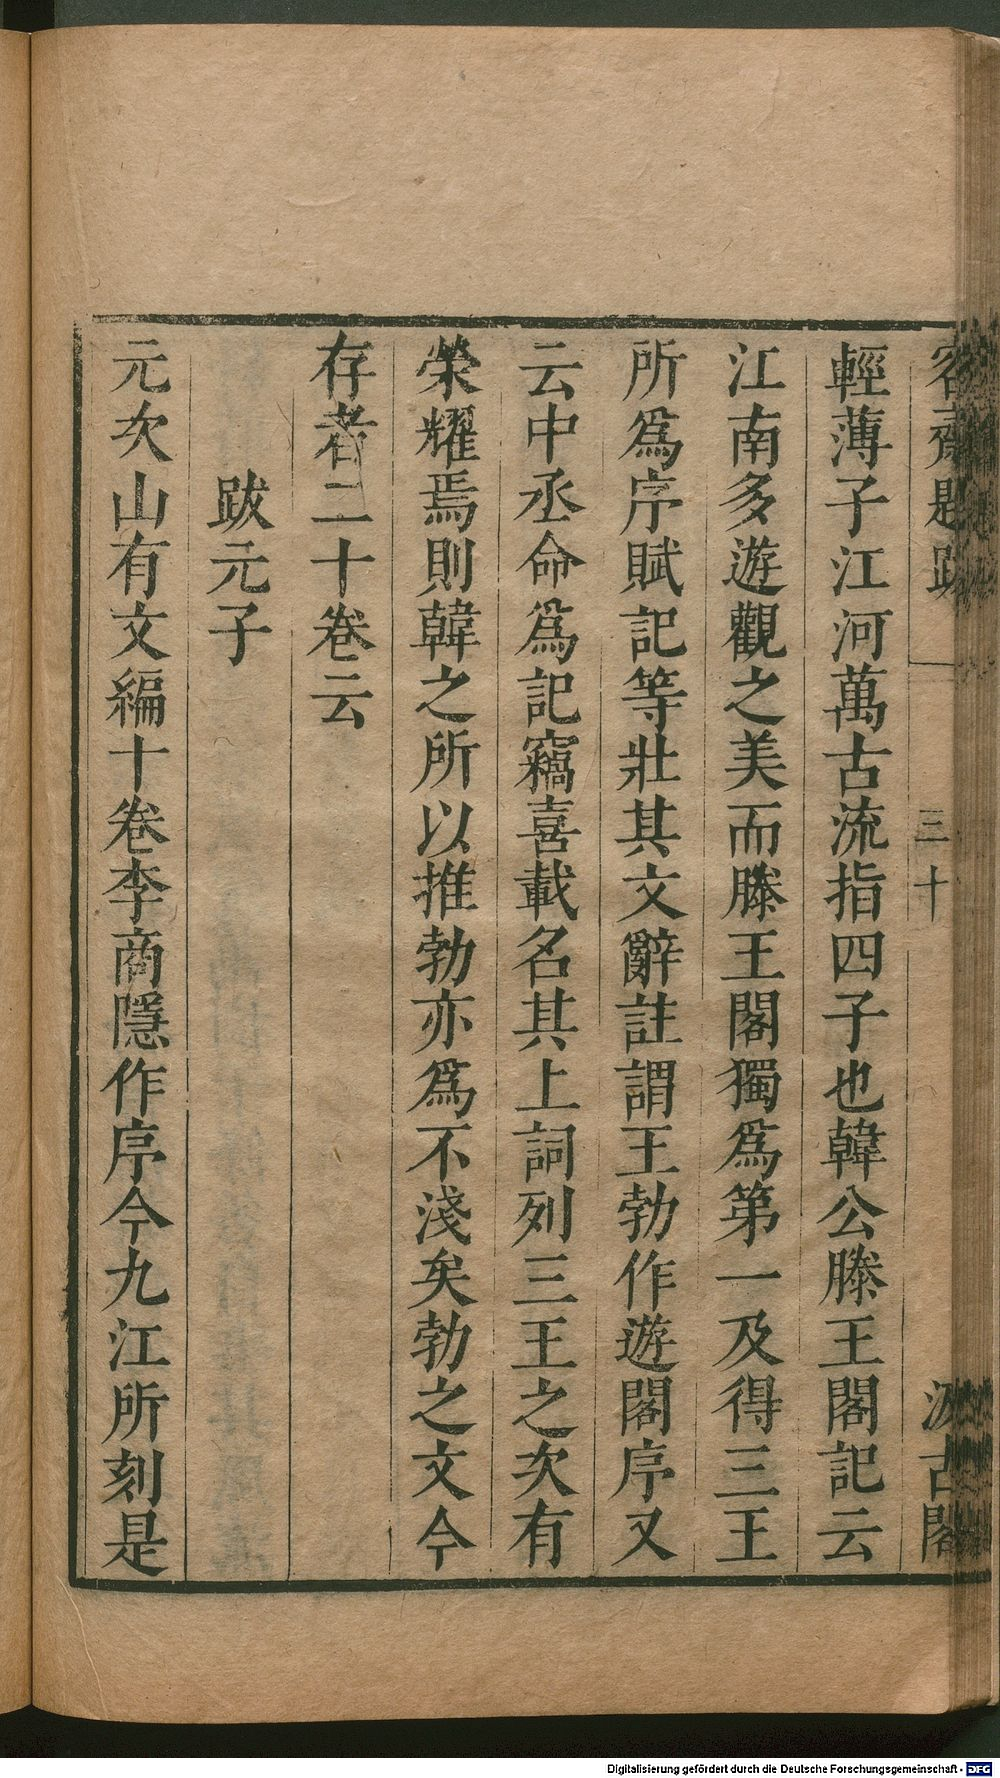 容齋題跋 三十 汲古閣
輕薄子江河萬古流指四子也韓公滕王閣記云
江南多遊觀之美而滕王閣獨爲第一及得三王
所爲序賦記等壯其文辭註謂王勃作遊閣序又
云中丞命爲記竊喜載名其上詞列三王之次有
榮耀焉則韓之所以推勃亦爲不淺矣勃之文今
存者二十卷云
跋元子
元次山有文編十卷李商隱作序今九江所刻是
Digitalisierung gefördert durch die Deutsche Forschungsgemeinschaft - DFG